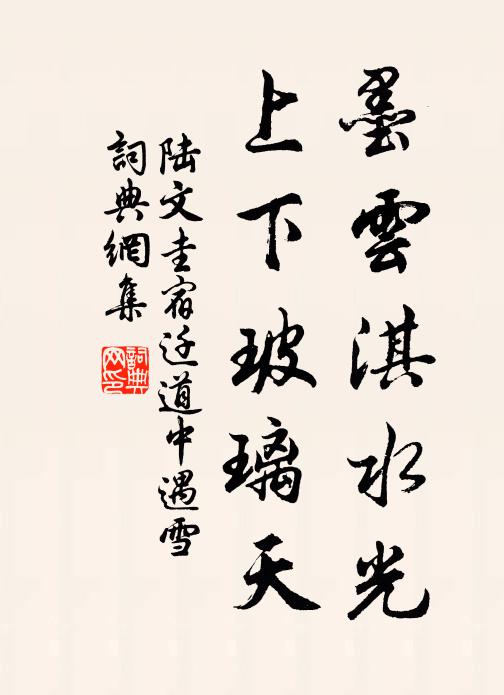 墨雲淇水光
上下玻璃天
陆文圭宿迁道中遇雪
詞典網集
詞典网印